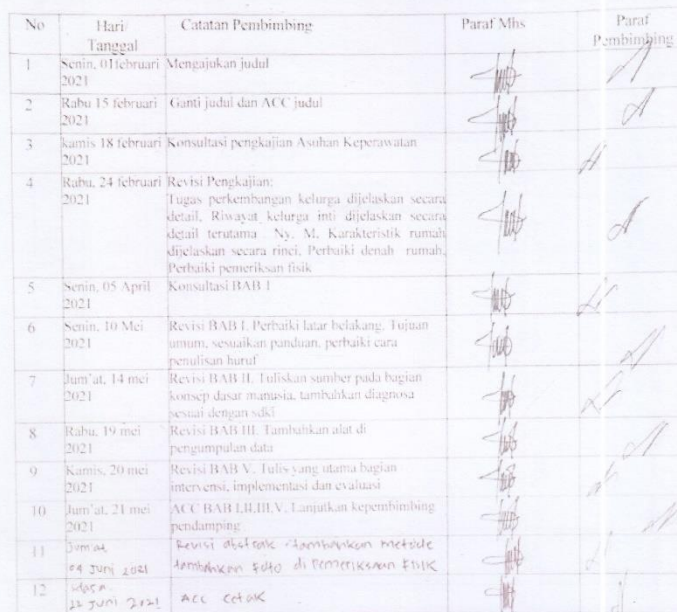 No Hari/ Catatan Pembimbing Paraf Mhs Paraf
Tanggal Pembimbing
1 Senin, 01februari Mengajukan judul
2021
2 Rabu 15 februari Ganti judul dan ACC judul
2021
3 kamis 18 februari Konsultasi pengkajian Asuhan Keperawatan
2021
4 Rabu, 24 februari Revisi Pengkajian;
2021 Tugas perkembangan kelurga dijelaskan secara
detail, Riwayat kelurga inti dijelaskan secara
detail terutama Ny. M. Karakteristik rumah
dijelaskan secara rinci, Perbaiki denah rumah,
Perbaiki pemeriksan fisik
5 Senin, 05 April Konsultasi BAB I
2021
6 Senin, 10 Mei Revisi BAB I, Perbaiki latar belakang, Tujuan
2021 umum, sesuaikan panduan, perbaiki cara
penulisan huruf
7 Jum'at, 14 mei Revisi BAB II, Tuliskan sumber pada bagian
2021 konsep dasar manusia, tambahkan diagnosa
sesuai dengan sdki
8 Rabu, 19 mei Revisi BAB III, Tambahkan alat di
2021 pengumpulan data
9 Kamis, 20 mei Revisi BAB V, Tulis yang utama bagian
2021 intervensi, implementasi dan evaluasi
10 Jum'at, 21 mei ACC BAB I,II,III,V, Lanjutkan kepembimbing
2021 pendamping
11 Jum'at, Revisi abstrak tambahkan metode
04 Juni 2021 tambahkan foto di Pemeriksaan Fisik
12
22 Juni 2021 Acc cetak